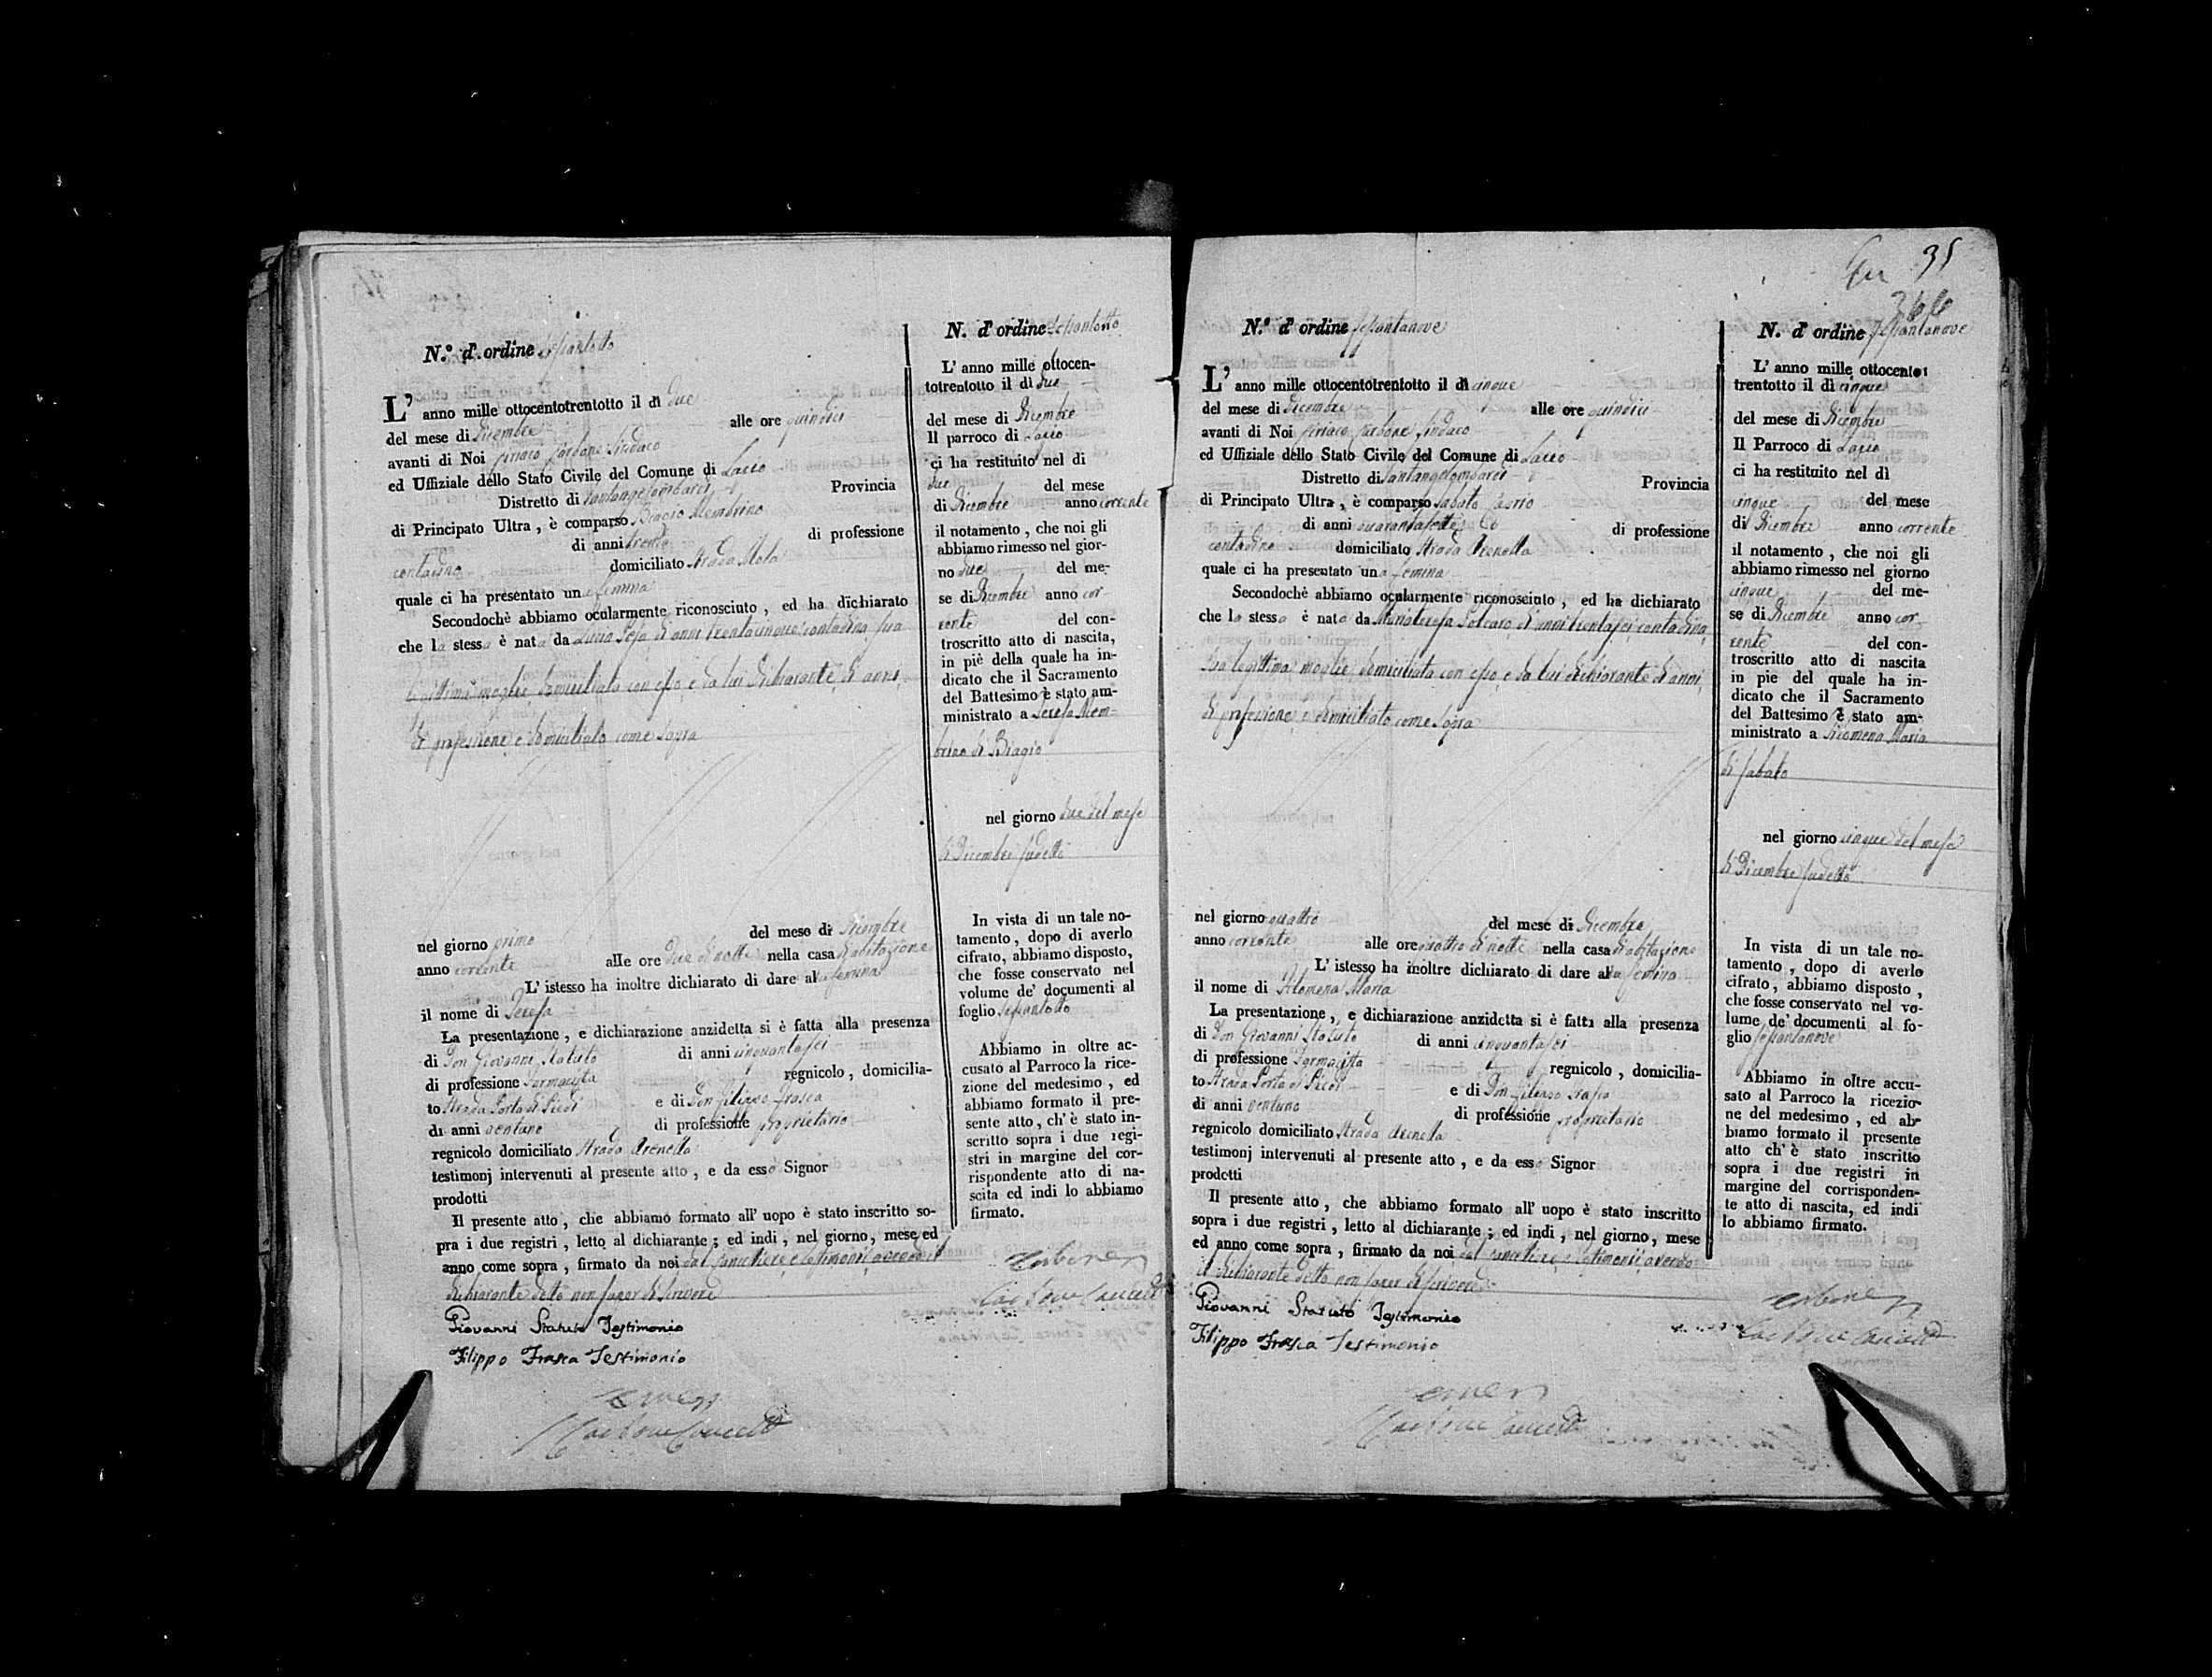 N.º d'ordine sessantotto
L' anno mille ottocentotrentotto il dì due
del mese di Dicembre alle ore quindici
avanti di Noi Ciriaco Carbone Sindaco
ed Uffiziale dello Stato Civile del Comune di
Distretto di Santangelombardi Provincia
di Principato Ultra, è comparso Biagio Membrino
di anni trenta di professione
contadino domiciliato Strada Mola
quale ci ha presentato una femina
Secondochè abbiamo ocularmente riconosciuto, ed ha dichiarato
che la stessa è nata da Lucia di anni trentacinque contadina sua
legittima moglie domiciliata con esso e da lui dichiarante di anni
di professione e domiciliato come sopra
nel giorno primo del mese di Dicembre
anno corrente alle ore due di notte nella casa d'abitazione
L' istesso ha inoltre dichiarato di dare alla femina
il nome di Teresa
La presentazione, e dichiarazione anzidetta si è fatta alla presenza
di Don Giovanni Statuto di anni cinquantasei
di professione Farmacista regnicolo, domicilia-
to Strada Porta di Piedi e di Don Filippo Frasca
di anni ventuno di professione proprietario
regnicolo domiciliato Strada Arenella
testimonj intervenuti al presente atto, e da esso Signor
prodotti
Il presente atto, che abbiamo formato all' uopo è stato inscritto so-
pra i due registri, letto al dichiarante; ed indi, nel giorno, mese ed
anno come sopra, firmato da noi dal Cancelliere e testimonj avendo il
dichiarante detto non saper di scrivere
Giovanni Statuto Testimonio
Filippo Frasca Testimonio
N. d' ordine sessantotto
L' anno mille ottocen-
totrentotto il dì due
del mese di Dicembre
Il parroco di
ci ha restituito nel dì
due del mese
di Dicembre anno corrente
il notamento, che noi gli
abbiamo rimesso nel gior-
no due del me-
se di Dicembre anno cor-
rente del con-
troscritto atto di nascita,
in piè della quale ha in-
dicato che il Sacramento
del Battesimo è stato am-
ministrato a Teresa Mem-
brino di Biagio
nel giorno due del mese
di Dicembre sudetto
In vista di un tale no-
tamento, dopo di averlo
cifrato, abbiamo disposto,
che fosse conservato nel
volume de' documenti al
foglio sessantotto
Abbiamo in oltre ac-
cusato al Parroco la rice-
zione del medesimo, ed
abbiamo formato il pre-
sente atto, ch' è stato in-
scritto sopra i due regi-
stri in margine del cor-
rispondente atto di na-
scita ed indi lo abbiamo
firmato.
35
N.º d' ordine sessantanove
L' anno mille ottocentotrentotto il dì cinque
del mese di Dicembre alle ore quindici
avanti di Noi Ciriaco Carbone Sindaco
ed Uffiziale dello Stato Civile del Comune di
Distretto di Santangelombardi Provincia
di Principato Ultra, è comparso Sabato
di anni quarantasette di professione
contadino domiciliato Strada Arenella
quale ci ha presentato una femina
Secondochè abbiamo ocularmente riconosciuto, ed ha dichiarato
che la stessa è nata da Mariateresa di anni trentasei contadina
sua legittima moglie domiciliata con esso e da lui dichiarante di anni
di professione e domiciliato come sopra
nel giorno quattro del mese di Dicembre
anno corrente alle ore quattro di notte nella casa d'abitazione
L' istesso ha inoltre dichiarato di dare alla femina
il nome di Filomena Maria
La presentazione, e dichiarazione anzidetta si è fatta alla presenza
di Don Giovanni Statuto di anni cinquantasei
di professione Farmacista regnicolo, domicilia-
to Strada Porta di Piedi e di Don Filippo Frasca
di anni ventuno di professione proprietario
regnicolo domiciliato Strada Arenella
testimonj intervenuti al presente atto, e da esso Signor
prodotti
Il presente atto, che abbiamo formato all' uopo è stato inscritto
sopra i due registri, letto al dichiarante; ed indi, nel giorno, mese
ed anno come sopra, firmato da noi dal Cancelliere e testimonj avendo
il dichiarante detto non saper di scrivere
Giovanni Statuto Testimonio
Filippo Frasca Testimonio
N. d' ordine sessantanove
L' anno mille ottocento
trentotto il dì cinque
del mese di Dicembre
Il Parroco di
ci ha restituito nel dì
cinque del mese
di Dicembre anno corrente
il notamento, che noi gli
abbiamo rimesso nel giorno
cinque del me-
se di Dicembre anno cor-
rente del con-
troscritto atto di nascita
in pie del quale ha in-
dicato che il Sacramento
del Battesimo è stato am-
ministrato a Filomena Maria
di Sabato
nel giorno cinque del mese
di Dicembre sudetto
In vista di un tale no-
tamento, dopo di averlo
cifrato, abbiamo disposto,
che fosse conservato nel vo-
lume de' documenti al fo-
glio sessantanove
Abbiamo in oltre accu-
sato al Parroco la ricezio-
ne del medesimo, ed ab-
biamo formato il presente
atto ch' è stato inscritto
sopra i due registri in
margine del corrisponden-
te atto di nascita, ed indi
lo abbiamo firmato.